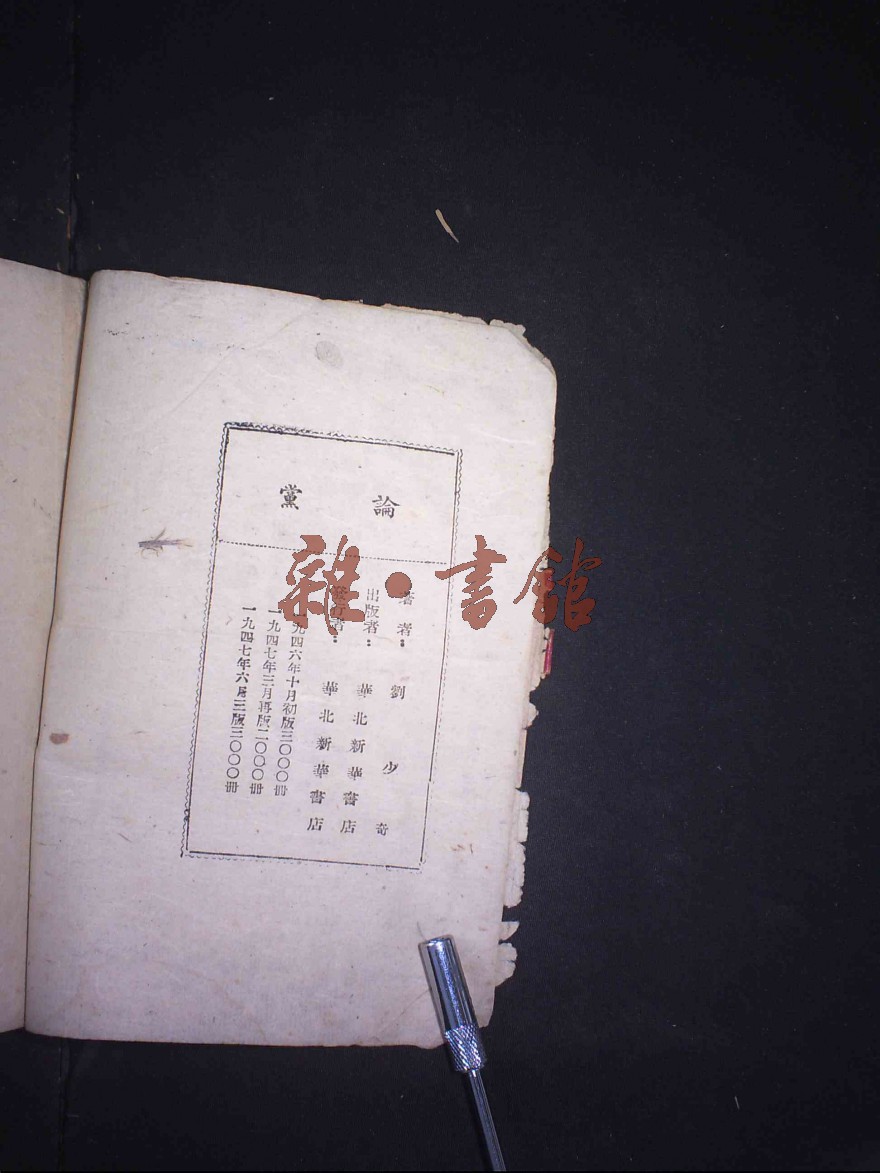 論黨
著者：劉少奇
出版者：華北新華書店
發行者：華北新華書店
一九四六年十月初版三〇〇〇冊
一九四七年三月再版二〇〇〇冊
一九四七年六月三版三〇〇〇冊
雜·書館